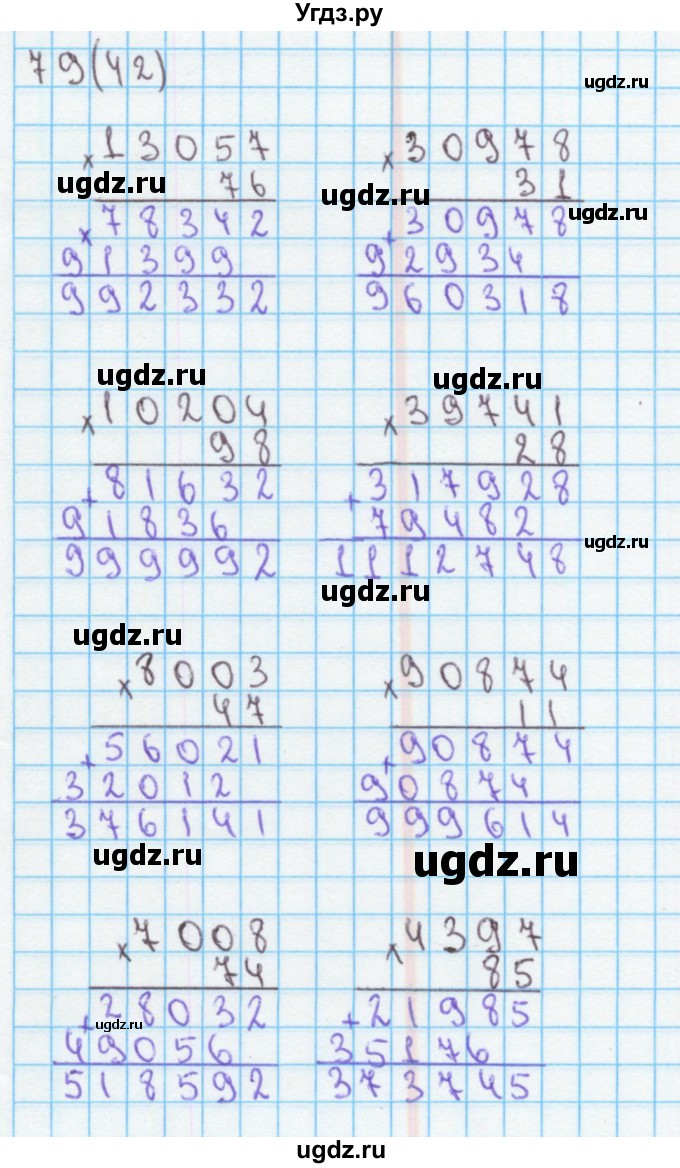 Угдз.ру
79(42)
ugdz.ru
× 13057
76
ugdz.ru
× 78342
91399
992332
× 30978
31
ugdz.ru
ugdz.ru
+ 30978
92934
960318
ugdz.ru
× 10204
98
+ 81632
91836
999992
ugdz.ru
× 39741
28
+ 317928
79482
1112748
ugdz.ru
ugdz.ru
ugdz.ru
× 8003
47
+ 56021
32012
376141
ugdz.ru
× 90874
11
+ 90874
90874
999614
ugdz.ru
× 7008
74
ugdz.ru
+ 28032
49056
518592
× 4397
85
+ 21985
35176
373745
ugdz.ru